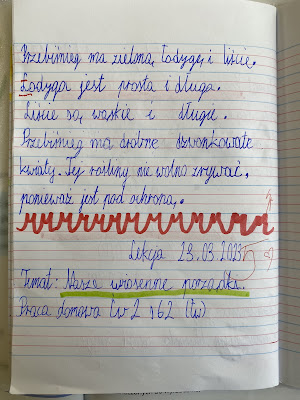 Przebiśnieg ma zieloną łodygę i liście.
Łodyga jest prosta i długa.
Liście są wąskie i długie.
Przebiśnieg ma drobne dzwonkowate
kwiaty. Tej rośliny nie wolno zrywać,
ponieważ jest pod ochroną.
Lekcja 23.03.2023
Temat: Nasze wiosenne porządki.
Praca domowa ćw 2 s 62 (ćw)